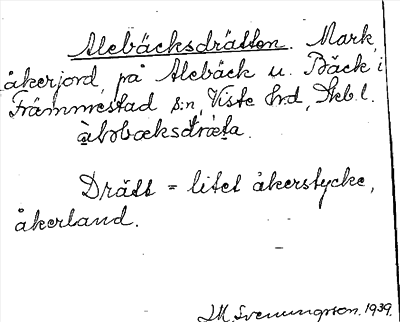 Alebäcksdrätten. Mark,
åkerjord, på Alebäck u. Bäck i
Främmestad s:n, Viste hrd, Skb. l.
Drätt = litet åkerstycke,
åkerland.
J.M. Svenungsson. 1939.